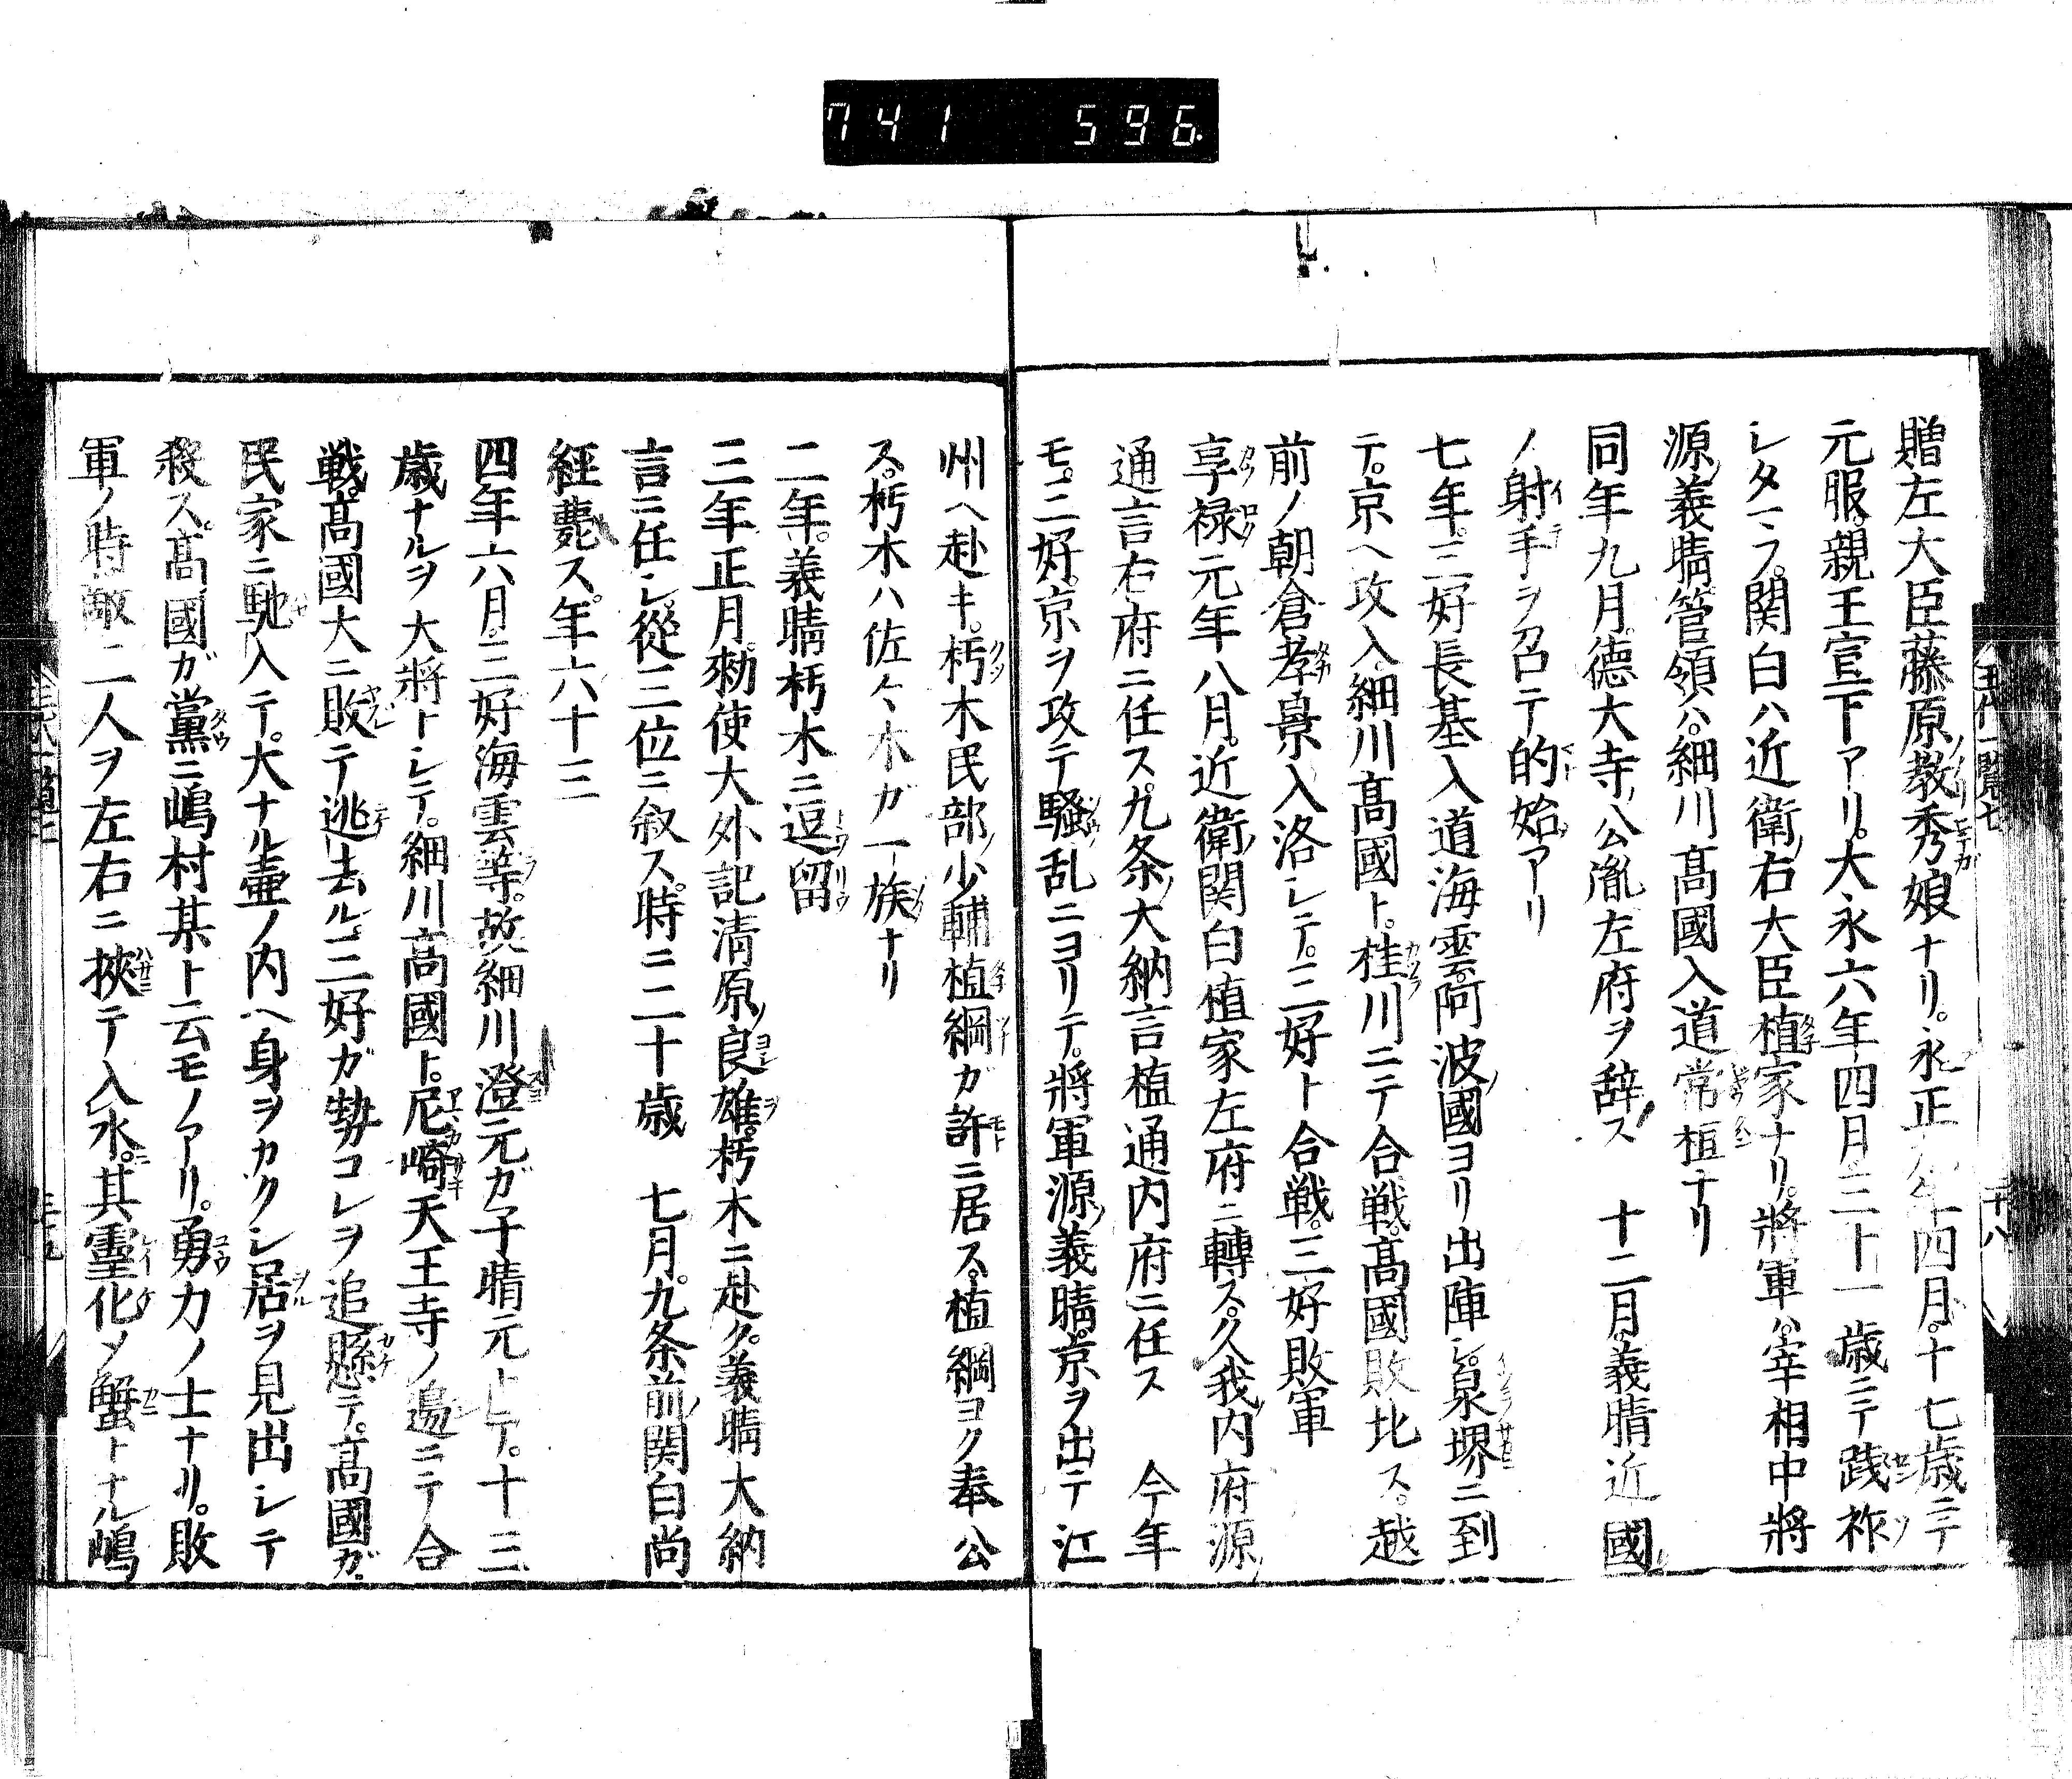 741 596
王代一覧七
二十八
贈左大臣藤原教秀娘ナリ。永正九年四月。十七歳ニテ
元服。親王宣下アリ。大永六年四月三十一歳ニテ践祚
シタマフ。関白ハ近衛右大臣植家ナリ。将軍ハ宰相中将
源義晴管領ハ。細川髙國入道常桓ナリ
同年九月。徳大寺公胤左府ヲ辞ス 十二月。義晴近國
ノ射手ヲ召テ的始アリ
七年。三好長基入道海雲。阿波國ヨリ出陣シ。泉堺ニ到
テ。京ヘ攻入。細川髙國ト。桂川ニテ合戦。髙國敗北ス。越
前ノ朝倉孝景入洛シテ。三好ト合戦。三好敗軍
享禄元年八月。近衛関白植家左府ニ轉ス。久我内府源
通言右府ニ任ス。九条大納言植通内府ニ任ス 今年
モ。三好。京ヲ攻テ騒乱ニヨリテ。將軍源義晴。京ヲ出テ江
州ヘ赴キ。朽木民部少輔植綱ガ許ニ居ス。植綱ヨク奉公
ス。朽木ハ佐々木ガ一族ナリ
二年。義晴朽木ニ逗留
三年正月。勅使大外記清原良雄。朽木ニ赴ク。義晴大納
言ニ任シ。從三位ニ叙ス。時ニ二十歳 七月。九条前関白尚
経薨ス。年六十三
四年六月。三好海雲等。故細川澄元ガ子晴元トテ。十三
歳ナルヲ大將トシテ。細川髙國ト。尼﨑天王寺ノ邉ニテ合
戦。髙國大ニ敗テ逃去ル三好ガ勢コレヲ追懸テ。髙國ガ。
民家ニ馳入テ。大ナル壷ノ内ヘ身ヲカクシ居ヲ見出シテ
殺ス。髙國ガ黨ニ嶋村某ト云モノアリ。勇力ノ士ナリ。敗
軍ノ時敵二人ヲ左右ニ挾テ入水。其靈化メ蟹トナル嶋